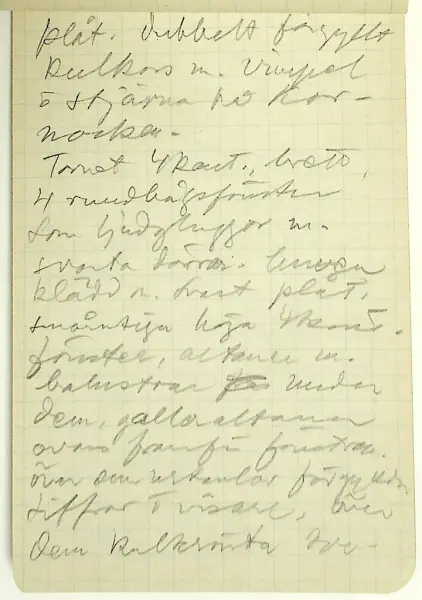 plåt. Dubbelt förgyllt
kulkors m. vimpel
o stjärna på kor-
nocken.
Tornet 4kant., brett,
4 rundbågsfönster
som ljudgluggor m.
svarta dörrar. huven
klädd m. svart plåt,
småruтiga höga 4kant.
fönster, altaner m.
balustrar under
dem, galleraltaner
ovan framför fönstren.
över dem urtavlor förgyllda
siffror o visare, över
dem kulkrönta